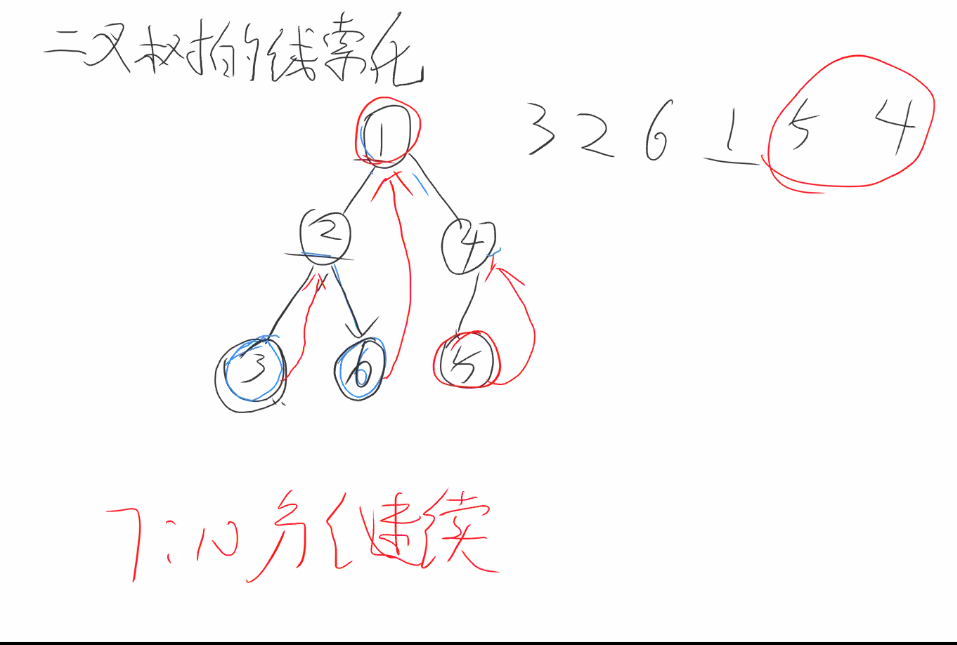 二叉树的线索化
3 2 6 1 5 4
1
2 4
3 6 5
7:10分继续